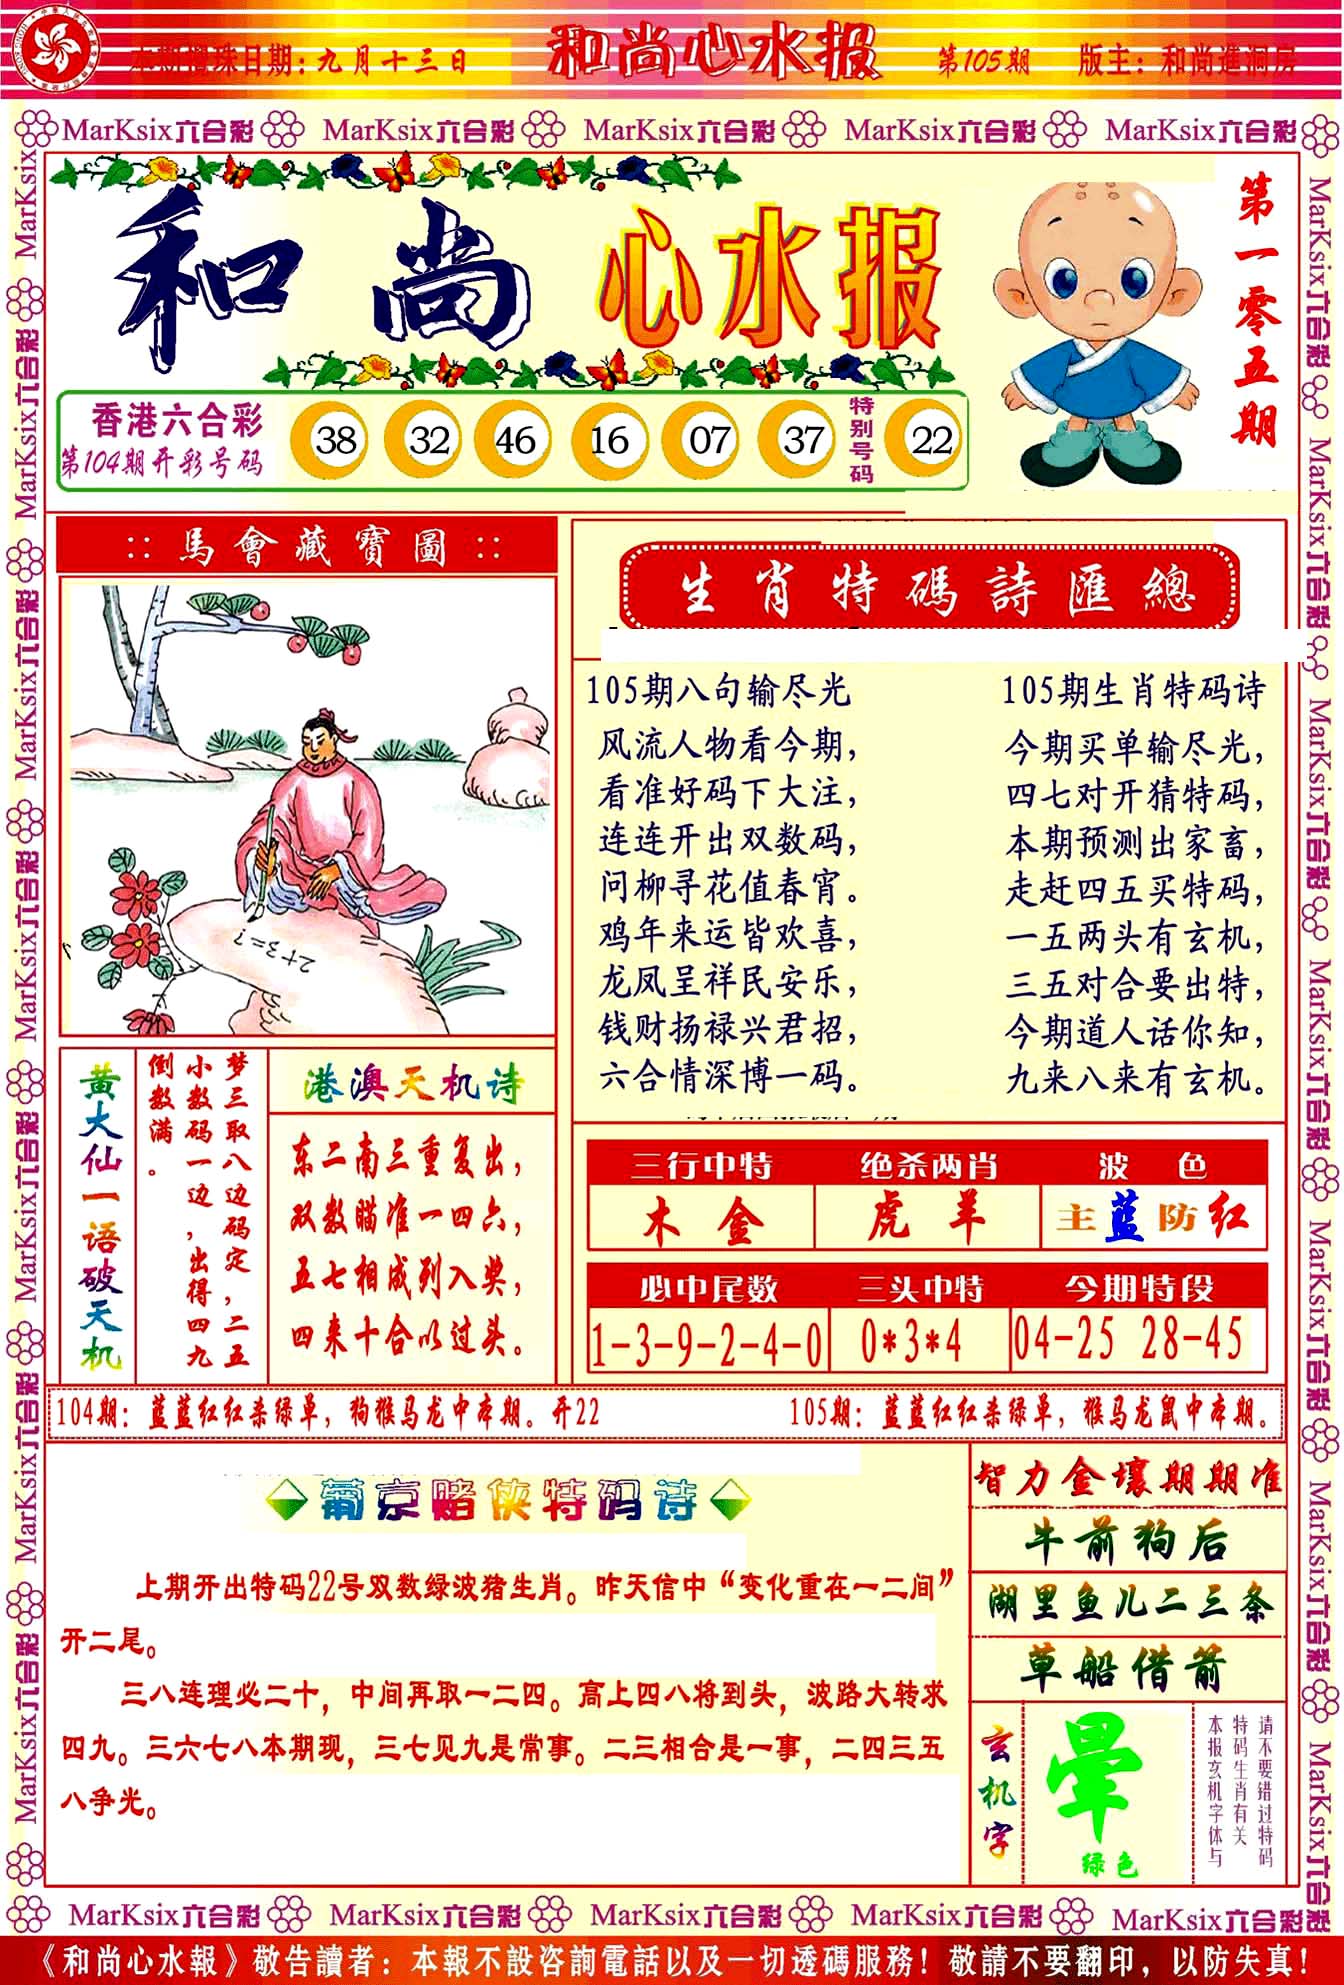 本期攪珠日期:九月十三日 和尚心水报 第105期 版主：和尚進洞房
MarKsix六合彩 MarKsix六合彩 MarKsix六合彩 MarKsix六合彩 MarKsix六合彩
和尚 心水报
第一零五期
香港六合彩
第104期开彩号码
38 32 46 16 07 37 特别号码 22
馬會藏寶圖
2+3=?
生肖特碼詩匯總
105期八句输尽光
风流人物看今期，
看准好码下大注，
连连开出双数码，
问柳寻花值春宵。
鸡年来运皆欢喜，
龙凤呈祥民安乐，
钱财扬禄兴君招，
六合情深博一码。
105期生肖特码诗
今期买单输尽光，
四七对开猜特码，
本期预测出家畜，
走赶四五买特码，
一五两头有玄机，
三五对合要出特，
今期道人话你知，
九来八来有玄机。
黄大仙一语破天机
梦三取八边码定，二五
小数码一边，出得四九
倒数满。
港澳天机诗
东二南三重复出，
双数瞄准一四六，
五七相成列入奖，
四来十合以过头。
三行中特 绝杀两肖 波色
木金 虎羊 主蓝防红
必中尾数 三头中特 今期特段
1-3-9-2-4-0 0*3*4 04-25 28-45
104期：蓝蓝红红杀绿单，狗猴马龙中本期。开22
105期：蓝蓝红红杀绿单，猴马龙鼠中本期。
葡京赌侠特码诗
上期开出特码22号双数绿波猪生肖。昨天信中“变化重在一二间”
开二尾。
三八连理必二十，中间再取一二四。高上四八将到头，波路大转求
四九。三六七八本期现，三七见九是常事。二三相合是一事，二四三五
八争光。
智力金壤期期准
牛前狗后
湖里鱼儿二三条
草船借箭
玄机字
晕
绿色
请不要错过特码
特码生肖有关
本报玄机字体与
MarKsix六合彩 MarKsix六合彩 MarKsix六合彩 MarKsix六合彩 MarKsix六合彩
《和尚心水報》敬告讀者：本報不設咨詢電話以及一切透碼服務！敬請不要翻印，以防失真！